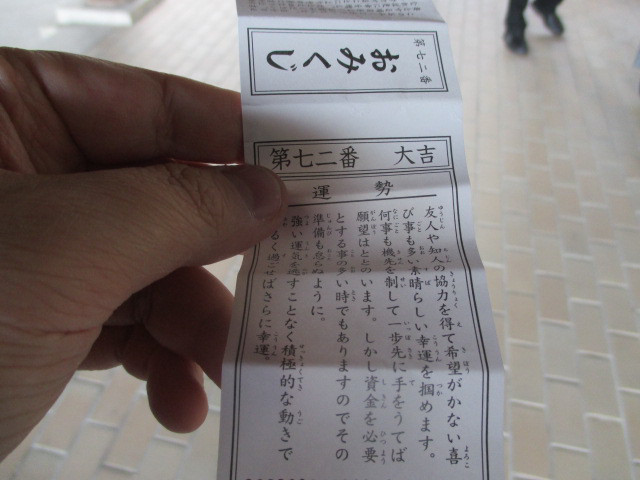 第七二番
おみくじ
第七二番 大吉
運勢
友人や知人の協力を得て希望がかない喜
び事も多い素晴らしい幸運を掴めます。
何事も機先を制して一歩先に手をうてば
願望はととのいます。しかし資金を必要
とする事の多い時でもありますのでその
準備も怠らぬように。
強い運気を逃すことなく積極的な動きで
るく過せばさらに幸運